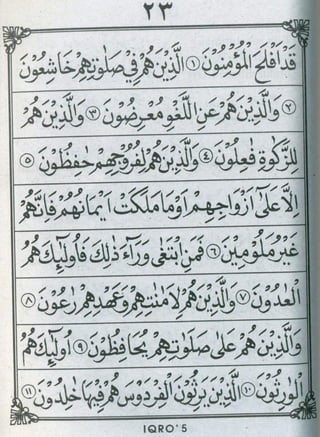 ٢٣
قَدْ اَفْلَحَ الْمُؤْمِنُوْنَ ① الَّذِيْنَ هُمْ فِيْ صَلَوٰتِهِمْ خَاشِعُوْنَ
② وَالَّذِيْنَ هُمْ عَنِ اللَّغْوِ مُعْرِضُوْنَ ③ وَالَّذِيْنَ هُمْ
لِلزَّكٰوةِ فٰعِلُوْنَ ④ وَالَّذِيْنَ هُمْ لِفُرُوْجِهِمْ حٰفِظُوْنَ ⑤
اِلَّا عَلٰٓى اَزْوَاجِهِمْ اَوْ مَا مَلَكَتْ اَيْمَانُهُمْ فَاِنَّهُمْ
غَيْرُ مَلُوْمِيْنَ ⑥ فَمَنِ ابْتَغٰى وَرَآءَ ذٰلِكَ فَاُولٰٓئِكَ هُمُ
الْعٰدُوْنَ ⑦ وَالَّذِيْنَ هُمْ لِاَمٰنٰتِهِمْ وَعَهْدِهِمْ رٰعُوْنَ ⑧
وَالَّذِيْنَ هُمْ عَلٰى صَلَوٰتِهِمْ يُحَافِظُوْنَ ⑨ اُولٰٓئِكَ هُمُ
الْوٰرِثُوْنَ ⑩ الَّذِيْنَ يَرِثُوْنَ الْفِرْدَوْسَ هُمْ فِيْهَا خٰلِدُوْنَ ⑪
IQRO' 5